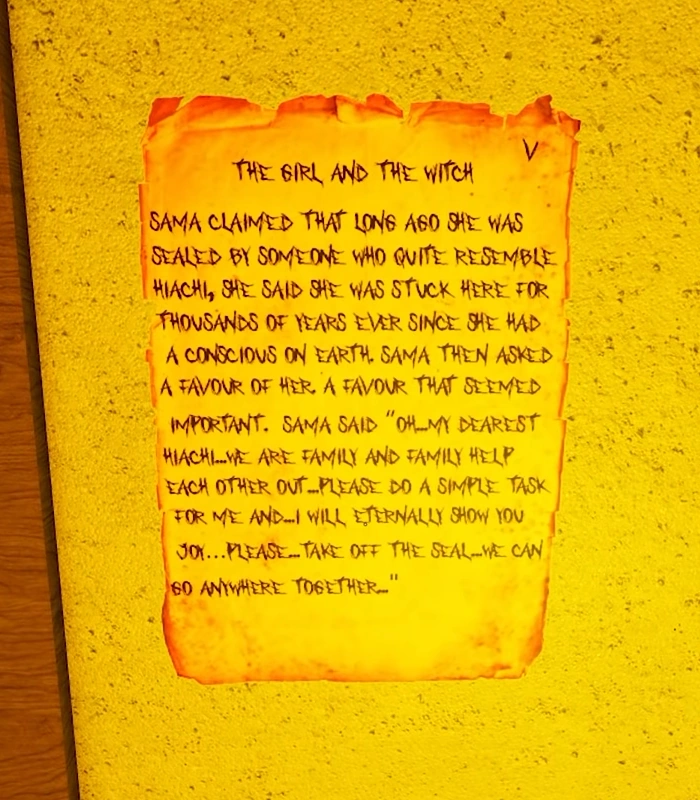 V
THE GIRL AND THE WITCH
SAMA CLAIMED THAT LONG AGO SHE WAS
SEALED BY SOMEONE WHO QUITE RESEMBLE
HIACHI, SHE SAID SHE WAS STUCK HERE FOR
THOUSANDS OF YEARS EVER SINCE SHE HAD
A CONSCIOUS ON EARTH. SAMA THEN ASKED
A FAVOUR OF HER. A FAVOUR THAT SEEMED
IMPORTANT. SAMA SAID "OH...MY DEAREST
HIACHI...WE ARE FAMILY AND FAMILY HELP
EACH OTHER OUT...PLEASE DO A SIMPLE TASK
FOR ME AND...I WILL ETERNALLY SHOW YOU
JOY...PLEASE...TAKE OFF THE SEAL...WE CAN
GO ANYWHERE TOGETHER..."